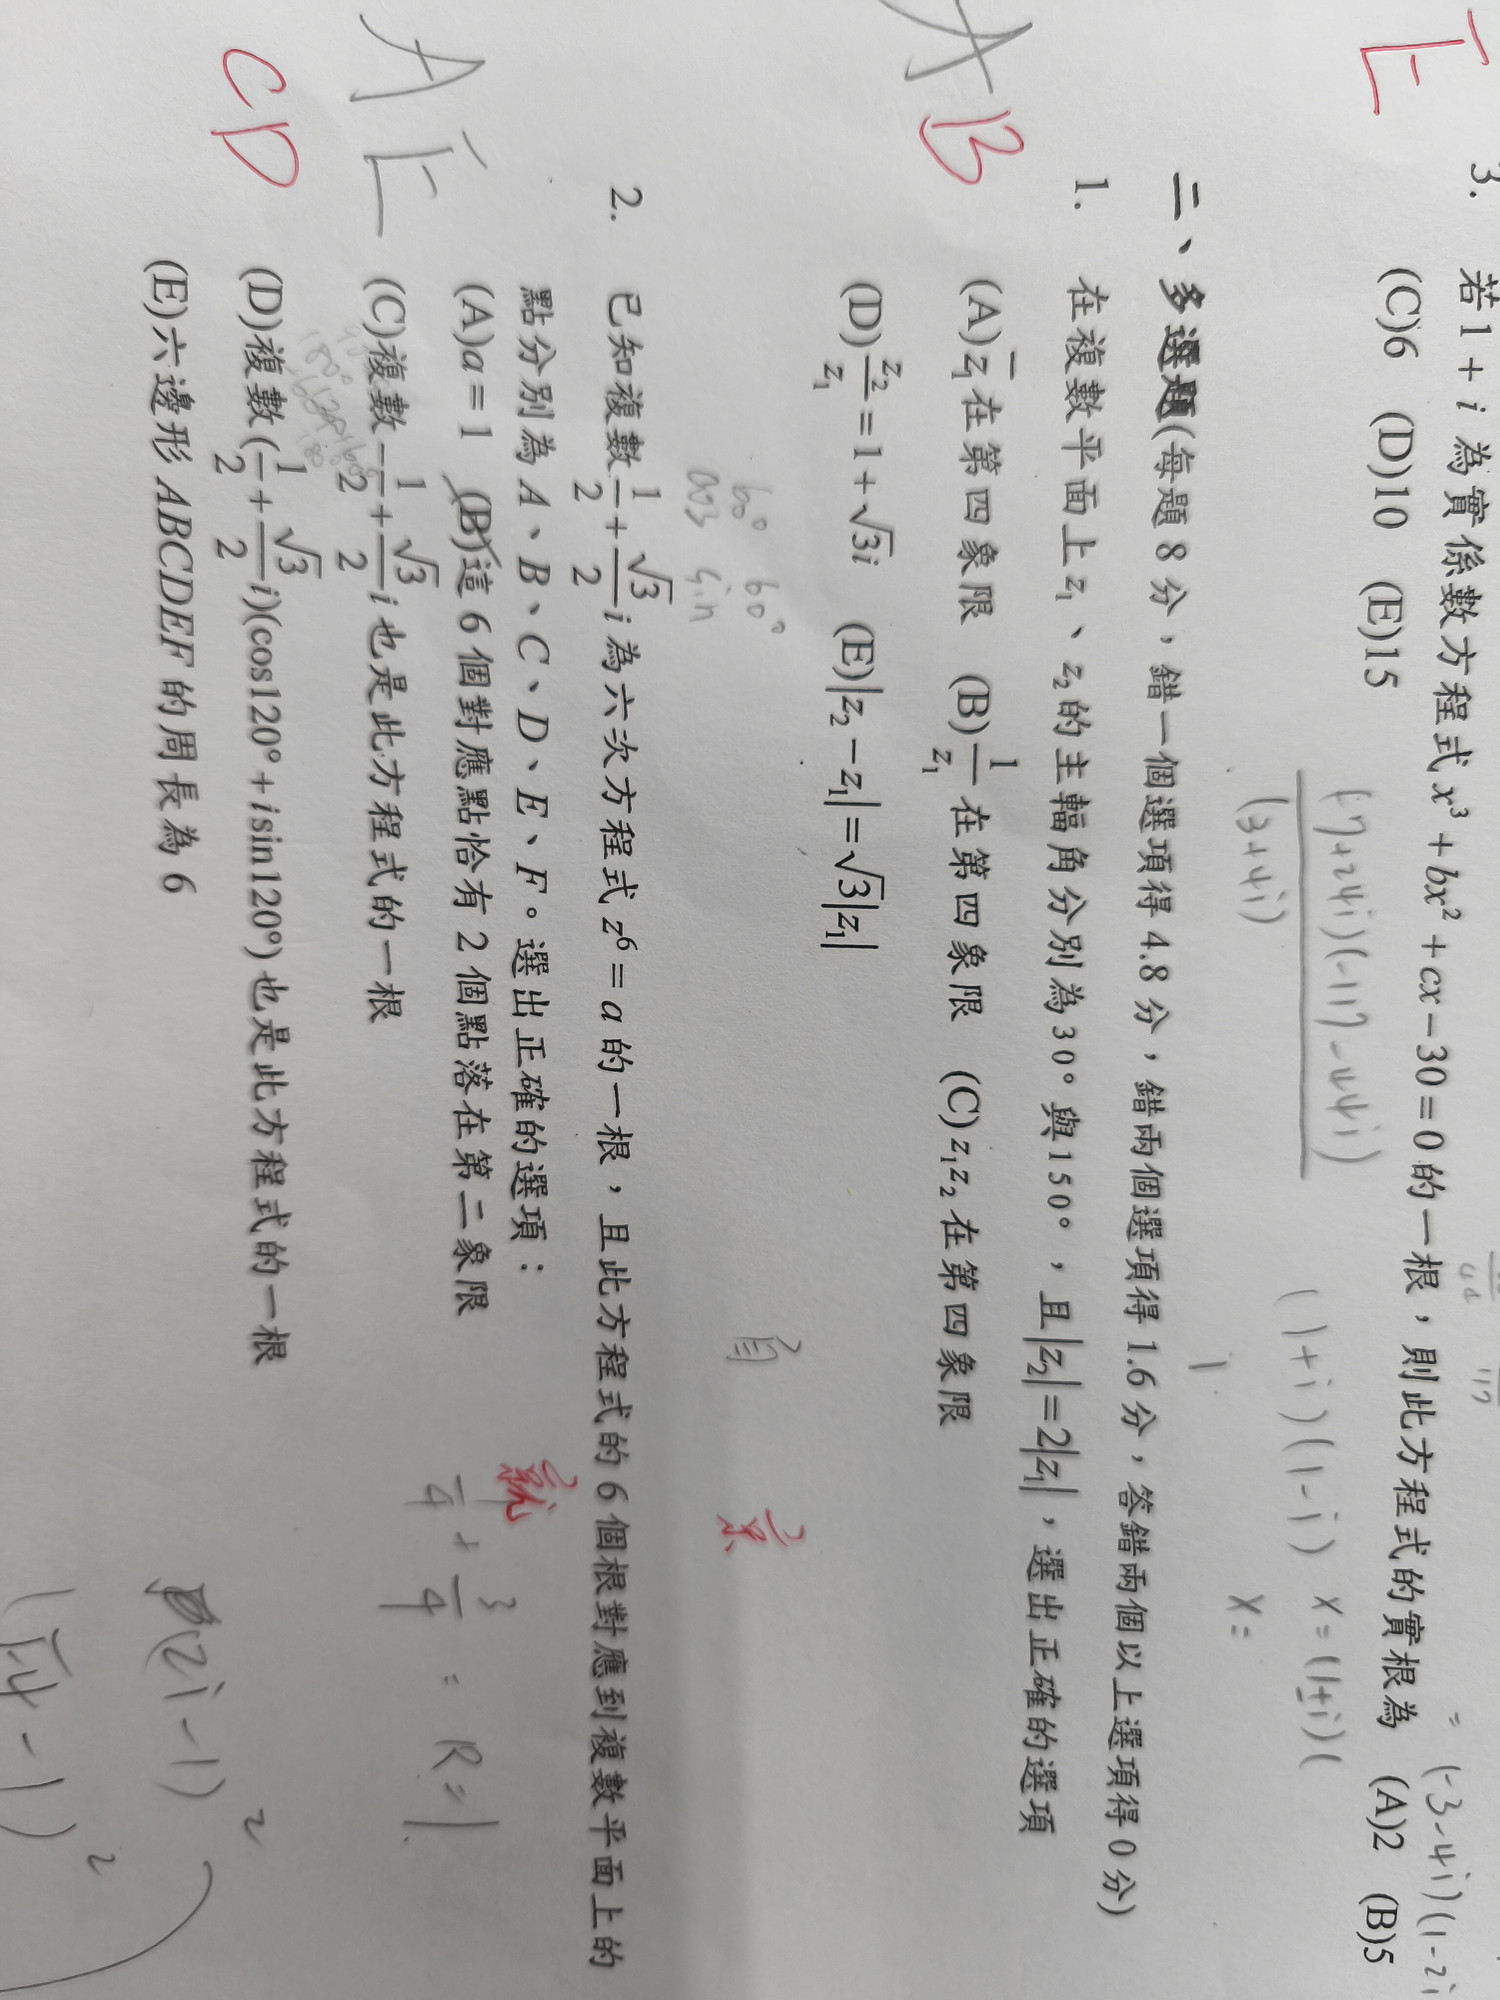 E
3. 若1 + i 為實係數方程式 x³ + bx² + cx − 30 = 0 的一根，則此方程式的實根為 (A)2 (B)5
(C)6 (D)10 (E)15
= (-3-4i)(1-2i
(-7+24i)(-117-44i)
(3+4i)
(1+i)(1-i) x=(1+i)(
x=
i
二、多選題(每題 8 分，錯一個選項得 4.8 分，錯兩個選項得 1.6 分，答錯兩個以上選項得 0 分)
AB
1. 在複數平面上 z₁、z₂ 的主輻角分別為30°與150°，且|z₂| = 2|z₁|，選出正確的選項
(A) z̄₁ 在第四象限 (B) 1/z₁ 在第四象限 (C) z₁z₂ 在第四象限
(D) z₂/z₁ = 1 + √3i (E)|z₂ − z₁| = √3|z₁|
60° 60°
cos sin
AE
CD
2. 已知複數 1/2 + √3/2 i 為六次方程式 z⁶ = a 的一根，且此方程式的 6 個根對應到複數平面上的
點分別為 A、B、C、D、E、F。選出正確的選項：
(A)a = 1 (B)這 6 個對應點恰有 2 個點落在第二象限
(C)複數 −1/2 + √3/2 i 也是此方程式的一根
(D)複數(1/2 + √3/2 i)(cos120° + isin120°)也是此方程式的一根
(E)六邊形 ABCDEF 的周長為 6
1/4 + 3/4 = R=1
(2i-1)²
(-4-1)²